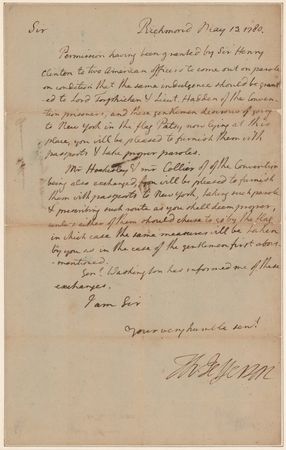 Sir Richmond May 13. 1780.
Permission having been granted by Sir Henry
Clinton to two American officers to come out on parole
on condition that the same indulgence should be grant
ed to Lord Torphichen & Lieut. Hadden of the Conven
tion prisoners, and these gentlemen desirous of going
to New York in the flag Patsy now lying at this
place, you will be pleased to furnish them with
passports & take proper paroles.
Mr and mr Collier of the Convention
being also exchanged, you will be pleased to furnish
them with passports to New York, taking such parole
& prescribing such route as you shall deem proper,
unless either of them should chuse to go by the flag
in which case the same measures will be taken
by you as in the case of the gentlemen first above
mentioned.
Genl. Washington has informed me of these
exchanges.
I am Sir
Your very humble servt.
Th: Jefferson